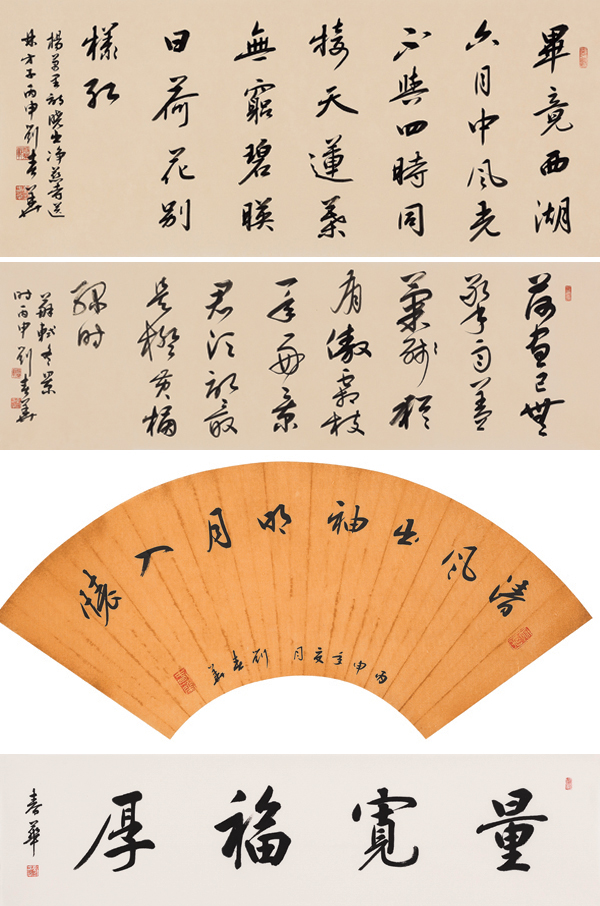 畢竟西湖
六月中風光
不與四時同
接天蓮葉
無窮碧暎
日荷花别
樣紅
楊萬里詩曉出净慈寺送
林方子丙申劉春華
荷盡已無
擎雨蓋
菊殘猶
有傲霜枝
一年好景
君須記最
是橙黄橘
緑時
蘇軾冬景
詩丙申劉春華
清風出袖明月入懷
丙申年亥月劉春華
量寬福厚
春華